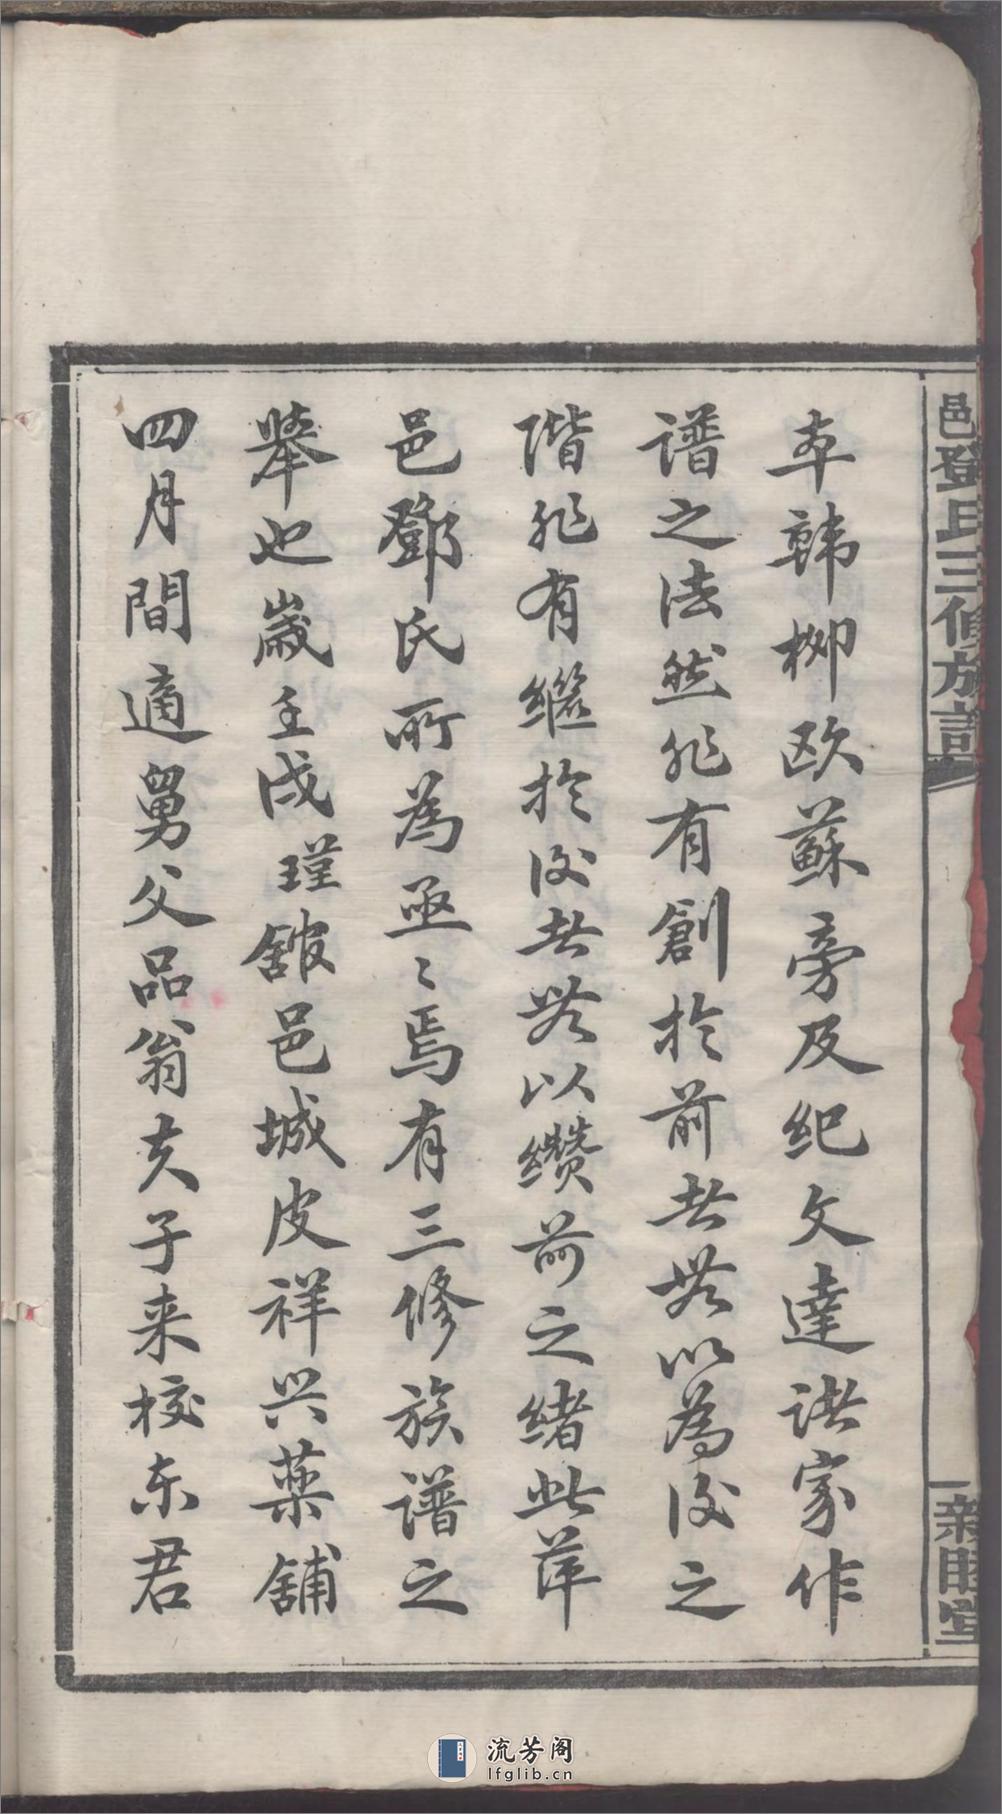 邑鄧氏三修族譜
親睦堂
本韓柳歐蘇旁及紀文達諸家作
譜之法然非有創於前者無以為後之
階非有繼於後者無以纘前之緒此萍
邑鄧氏所為亟〻焉有三修族譜之
舉也歲壬戌瑾舘邑城皮祥兴藥舖
四月間適舅父品翁夫子来校东君
流芳阁
lfglib.cn